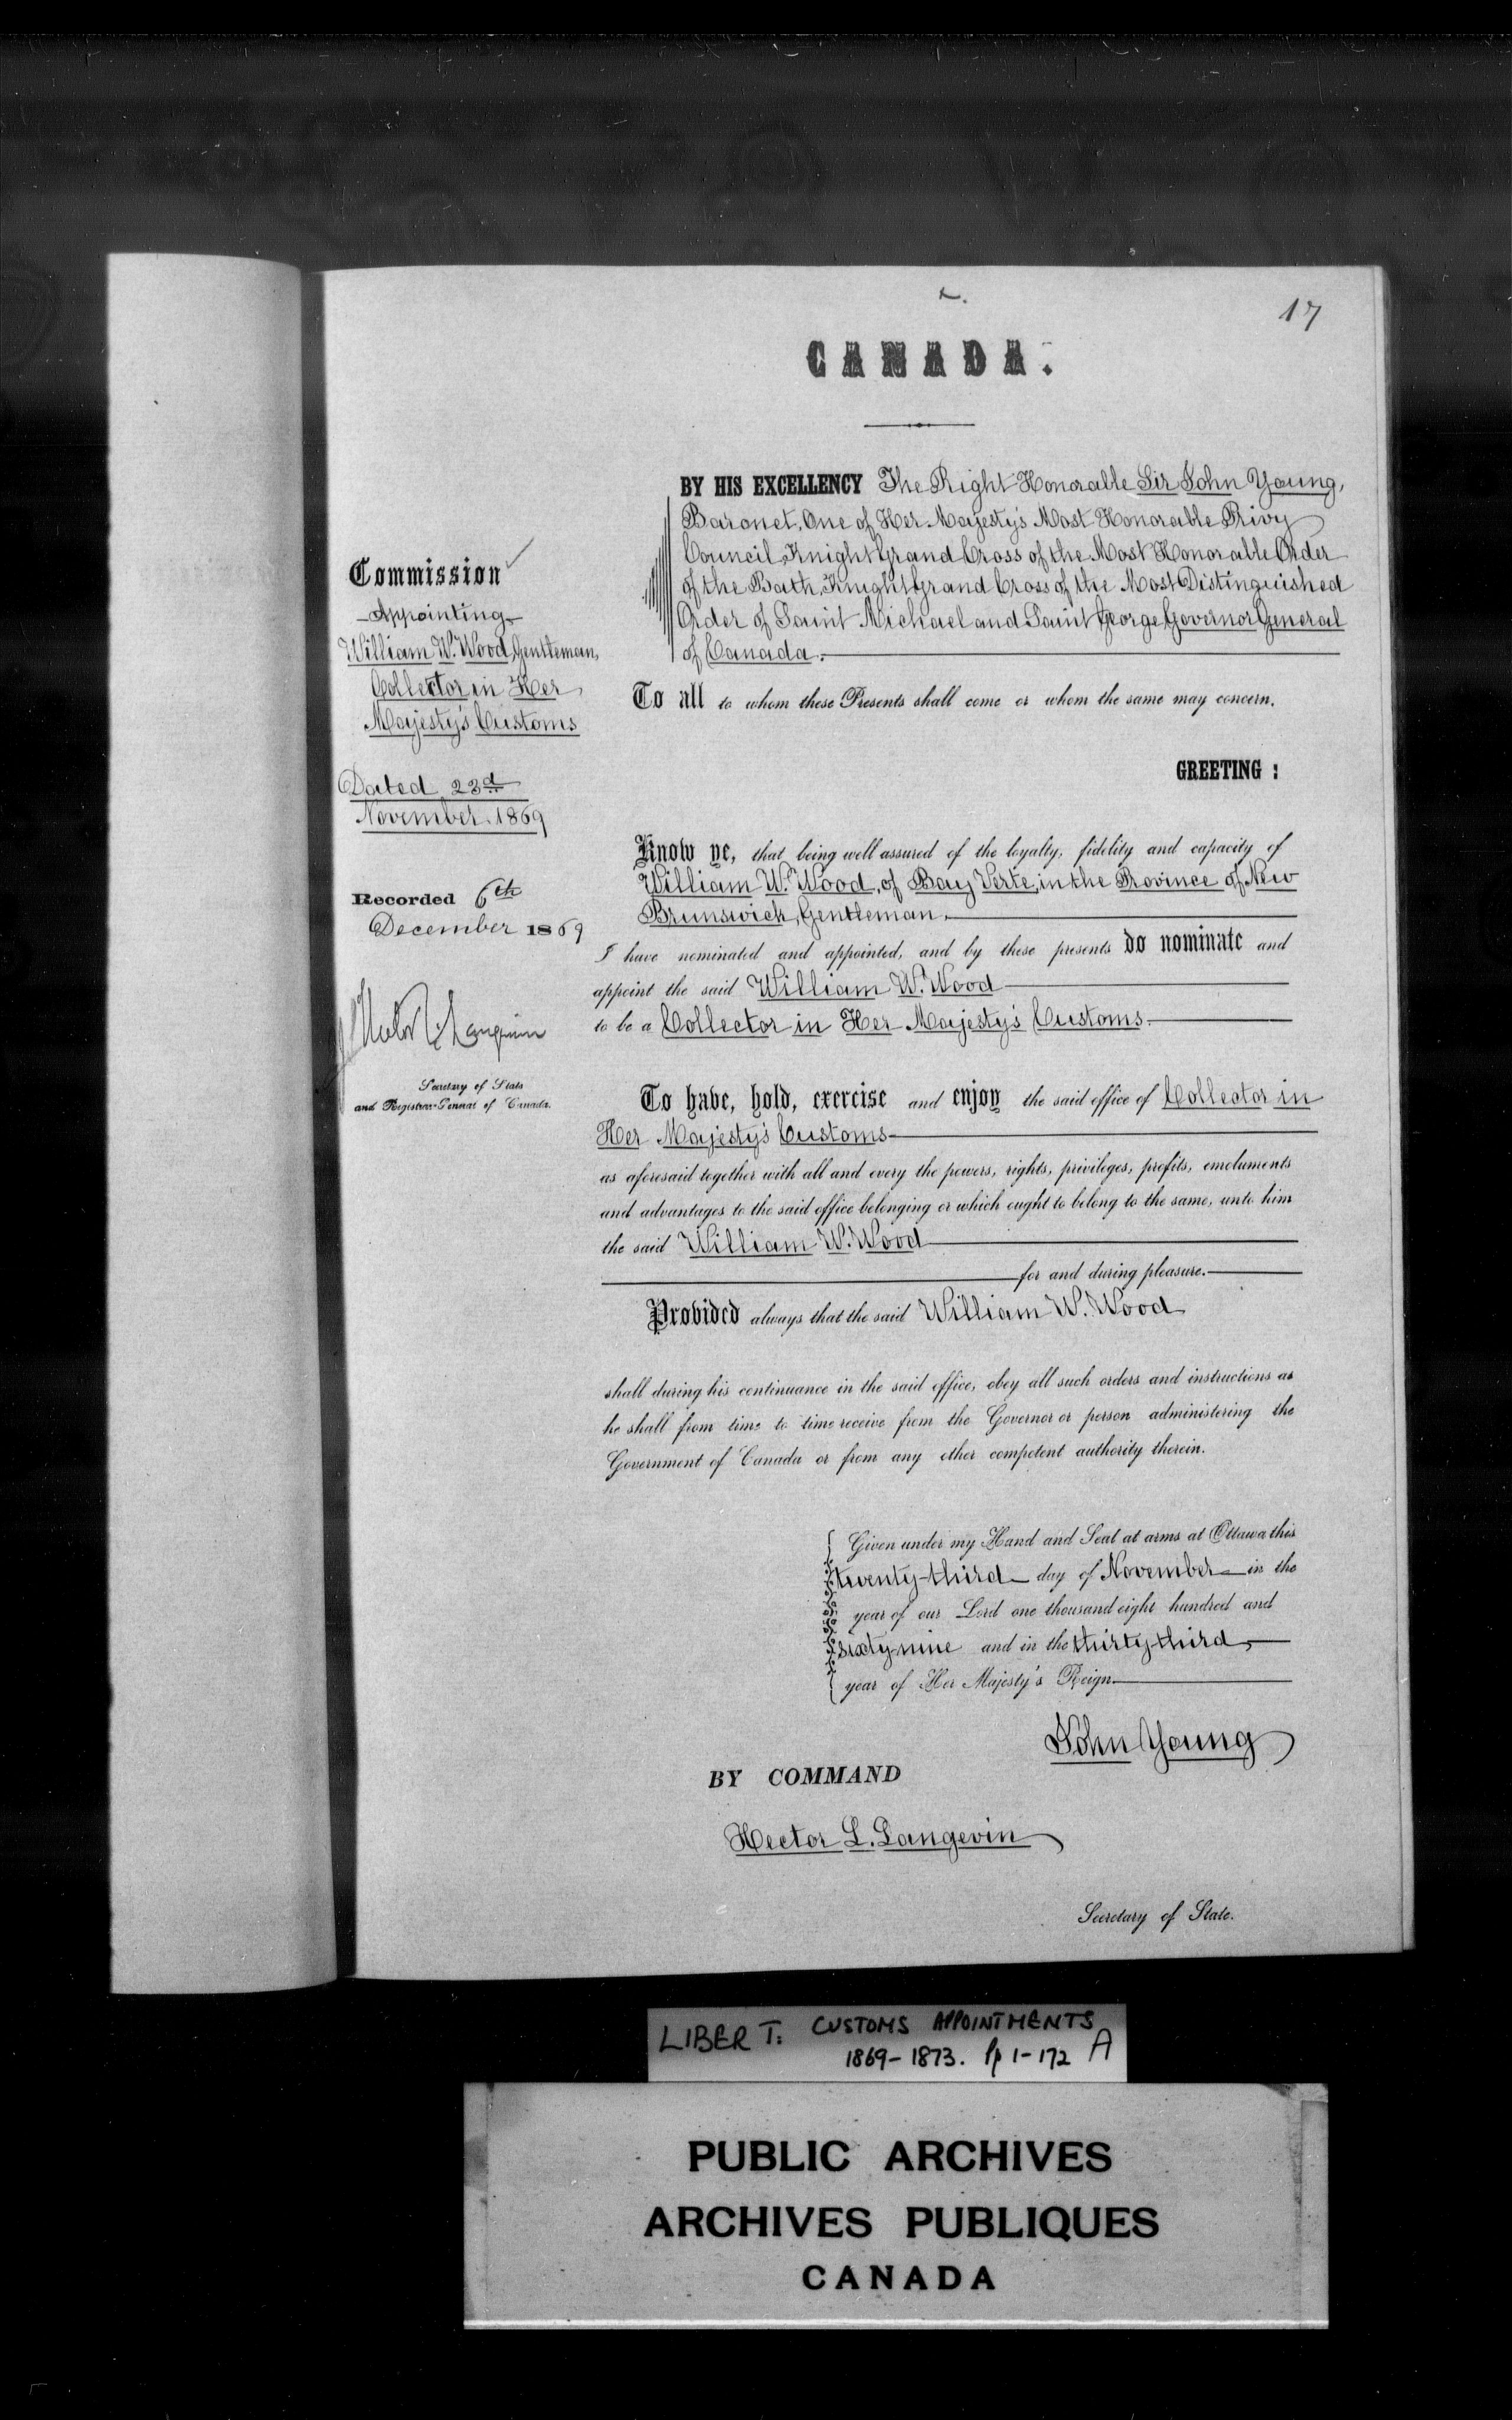 17
CANADA.
BY HIS EXCELLENCY The Right Honorable Sir John Young,
Baronet, One of Her Majesty's Most Honorable Privy
Council, Knight Grand Cross of the Most Honorable Order
of the Bath, Knight Grand Cross of the Most Distinguished
Order of Saint Michael and Saint George, Governor General
of Canada.
To all to whom these Presents shall come or whom the same may concern.
GREETING :
Commission
Appointing
William W. Wood, Gentleman,
Collector in Her
Majesty's Customs
Dated 23d
November 1869
Recorded 6th
December 1869
Hector L. Langevin
Secretary of State
and Registrar-General of Canada.
Know ye, that being well assured of the loyalty, fidelity and capacity of
William W. Wood, of Bay Verte, in the Province of New
Brunswick, Gentleman,
I have nominated and appointed, and by these presents do nominate and
appoint the said William W. Wood
to be a Collector in Her Majesty's Customs.
To have, hold, exercise and enjoy the said office of Collector in
Her Majesty's Customs
as aforesaid together with all and every the powers, rights, privileges, profits, emoluments
and advantages to the said office belonging or which ought to belong to the same, unto him
the said William W. Wood
for and during pleasure.
Provided always that the said William W. Wood
shall during his continuance in the said office, obey all such orders and instructions as
he shall from time to time receive from the Governor or person administering the
Government of Canada or from any other competent authority therein.
Given under my Hand and Seal at arms at Ottawa this
twenty-third day of November in the
year of our Lord one thousand eight hundred and
sixty-nine and in the thirty-third,
year of Her Majesty's Reign.
John Young
BY COMMAND
Hector L. Langevin
Secretary of State.
LIBER T: CUSTOMS APPOINTMENTS
1869-1873. Pp 1-172 A
PUBLIC ARCHIVES
ARCHIVES PUBLIQUES
CANADA